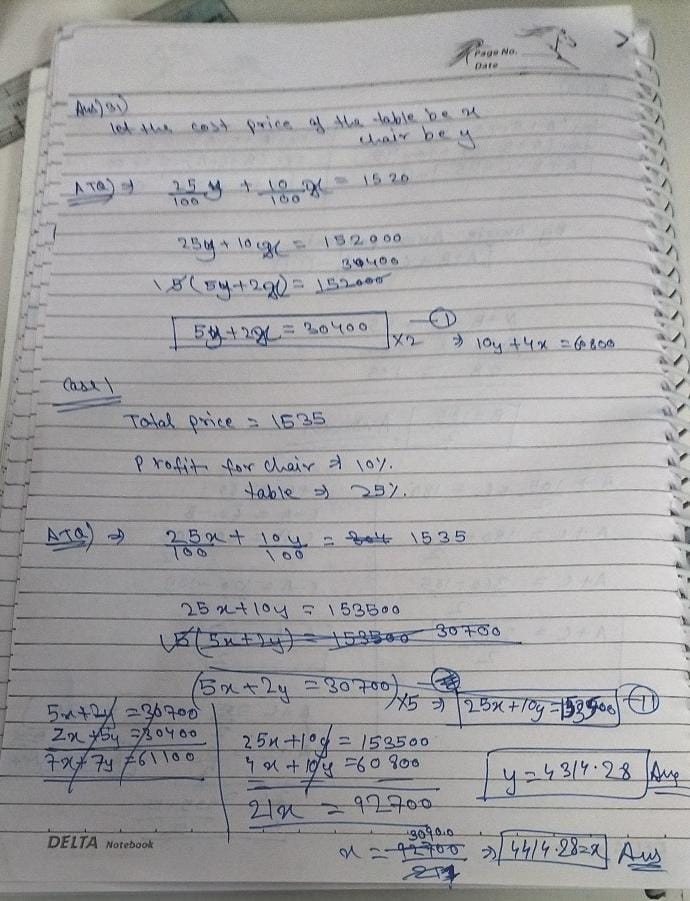 Page No.
Date
Ans) 31)
let the cost price of the table be x
chair be y
ATQ) ⇒ 25/100 y + 10/100 x = 1520
25y + 10x = 152000
30400
5(5y+2x) = 152000
5y+2x = 30400 ×2 —① ⇒ 10y+4x = 60800
Case 1
Total price = 1535
Profit for chair ⇒ 10%.
table ⇒ 25%.
ATQ) ⇒ 25x/100 + 10y/100 = 1535
25x+10y = 153500
5(5x+2y) = 153500 30700
(5x+2y = 30700) ×5 ⇒ 25x+10y=153500 —⑪
5x+2y = 30700
2x+5y = 30400
7x+7y = 61100
25x+10y = 153500
4x+10y = 60800
21x = 92700
y = 4314.28 Ans
x = 92700/21 ⇒ 4414.28=x Ans
DELTA Notebook